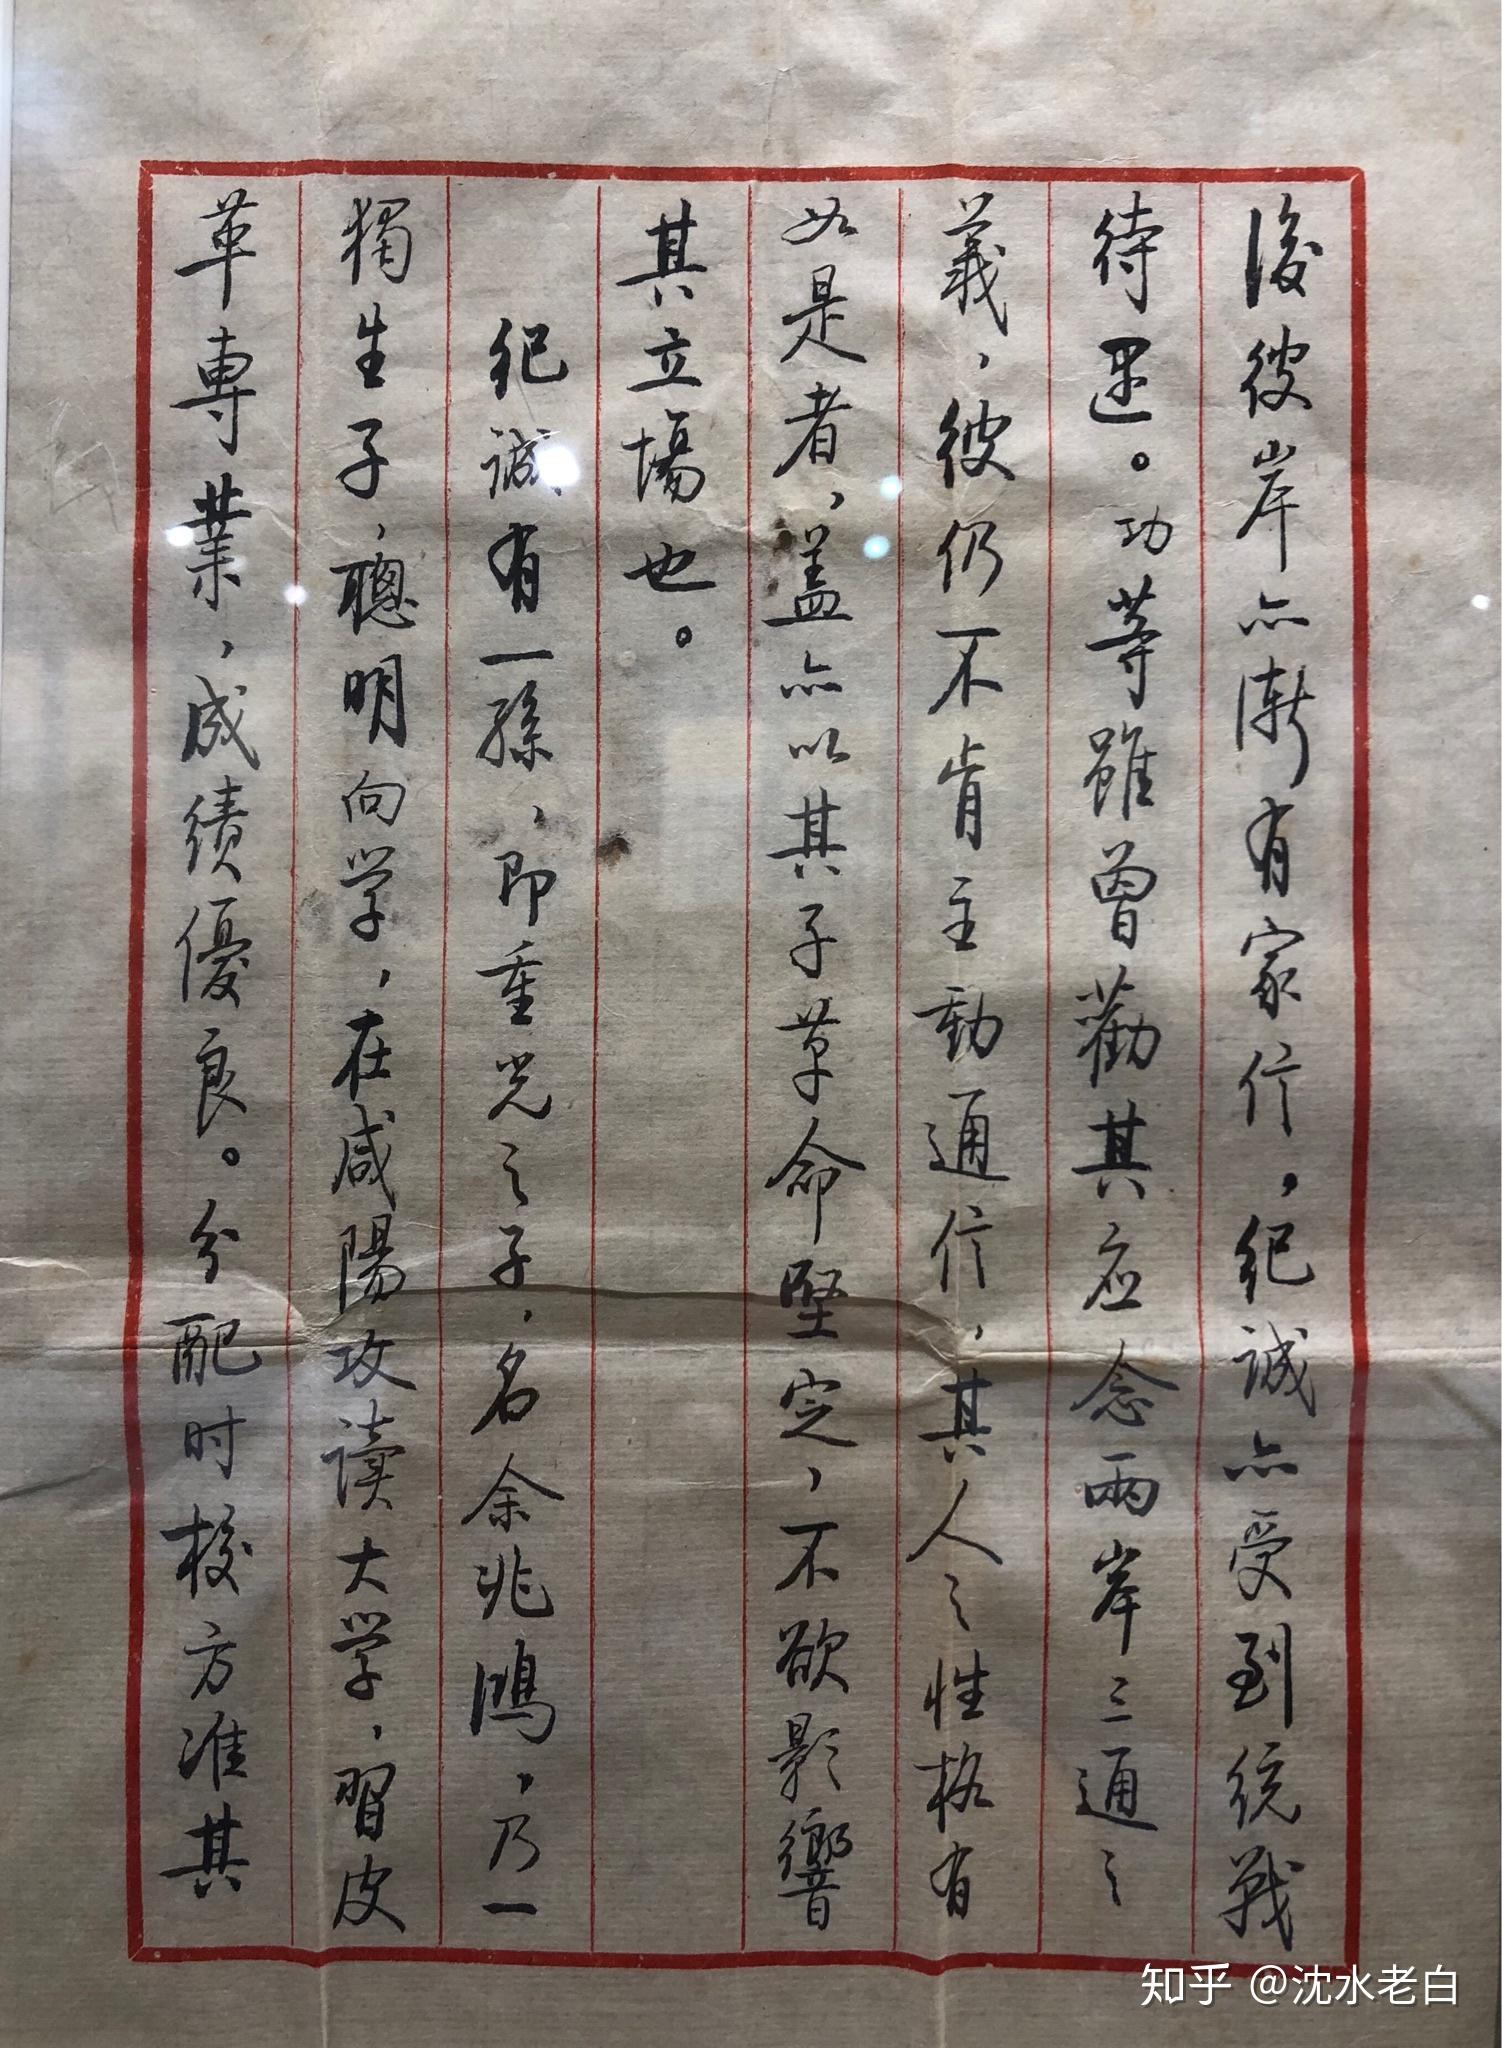 後彼岸亦漸有家信。紀誠亦受到统戰
待遇。功等雖曾勸其应念兩岸三通之
義，彼仍不肯主動通信，其人之性格有
如是者，蓋亦以其子革命堅定，不欲影響
其立場也。
紀誠有一孫，即重光之子，名余兆鴻，乃一
獨生子，聰明向学，在咸陽攻读大学，習皮
革專業，成绩優良。分配时校方准其
知乎 @沈水老白